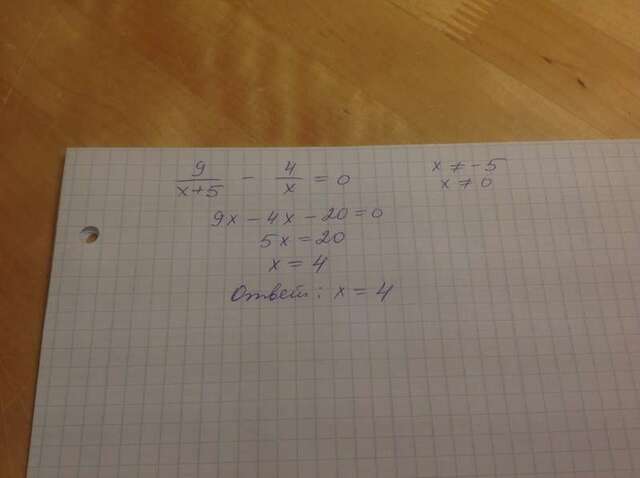 9/(x+5) - 4/x = 0
x ≠ -5
x ≠ 0
9x - 4x - 20 = 0
5x = 20
x = 4
Ответ: x = 4